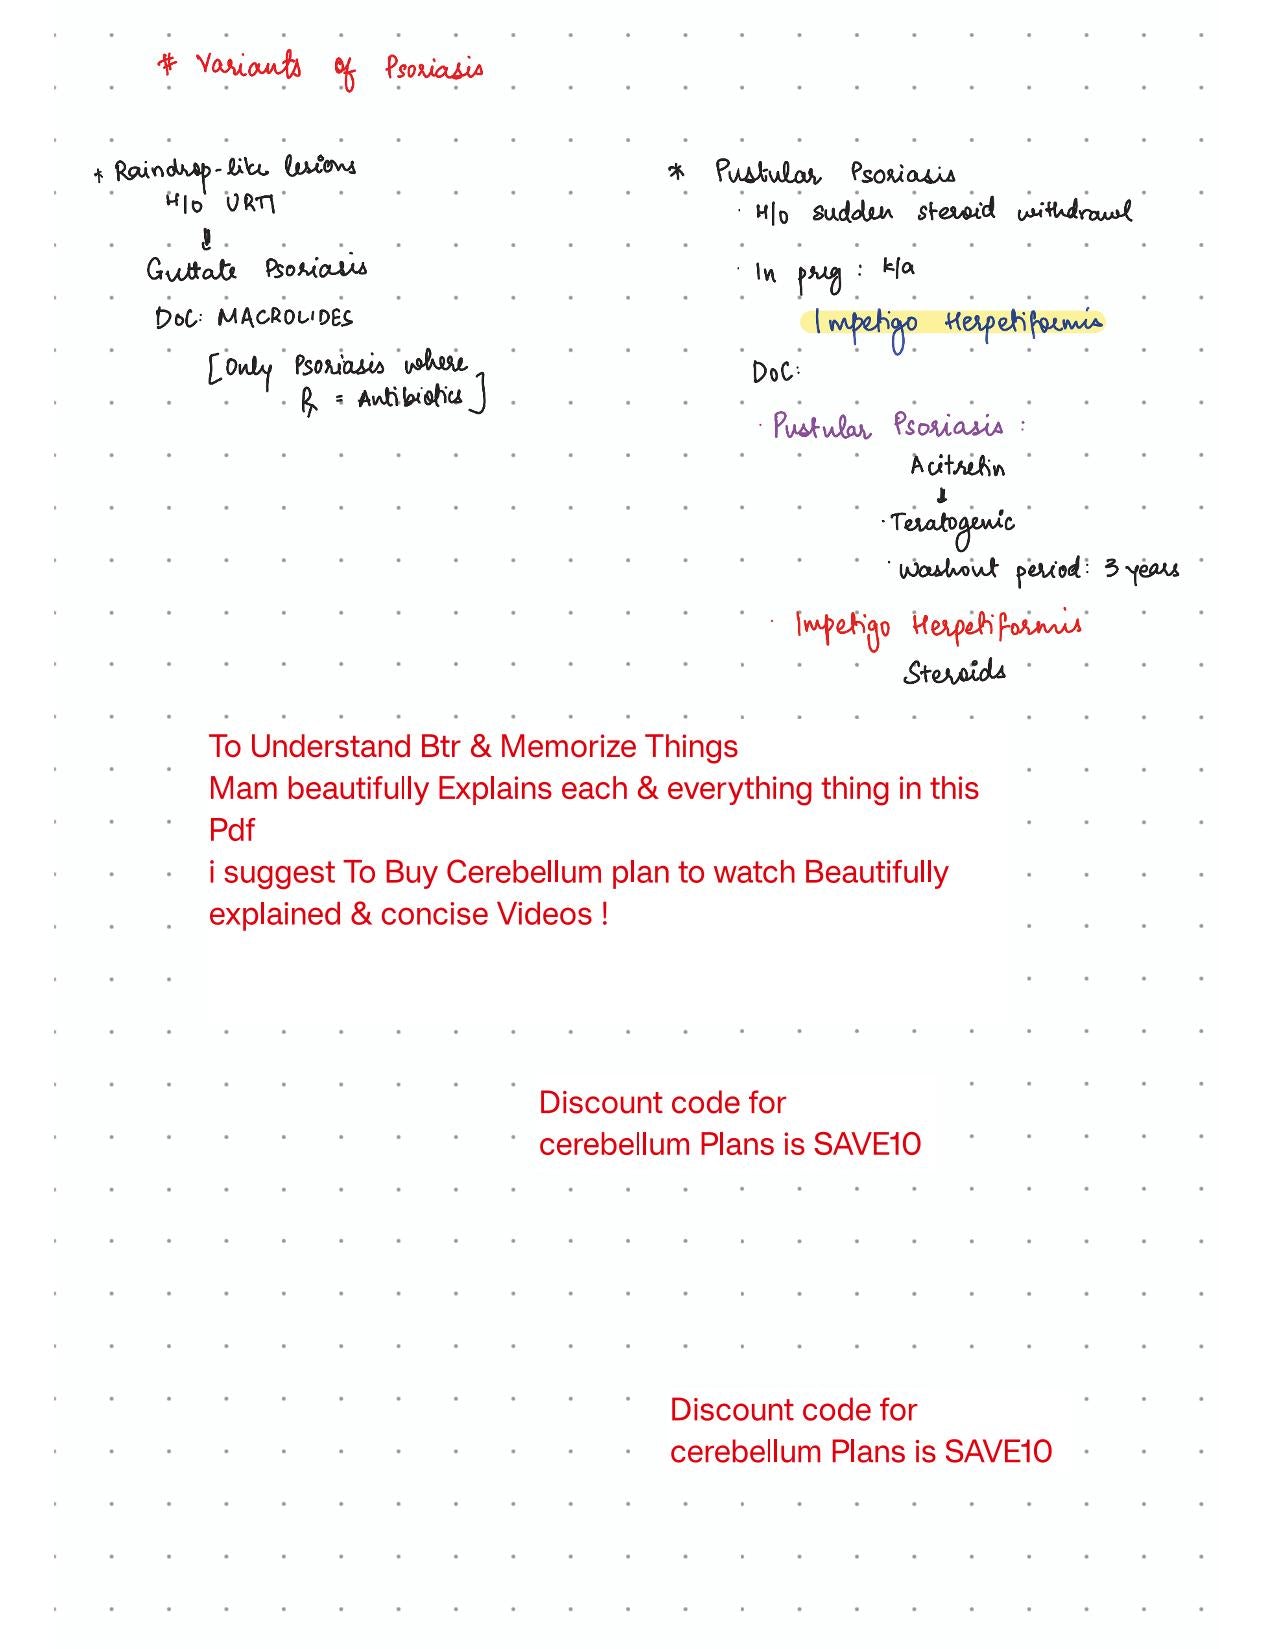 # Variants of Psoriasis
* Raindrop-like lesions
H/o URTI
↓
Guttate Psoriasis
DOC: MACROLIDES
[Only Psoriasis where
Rx = Antibiotics]
* Pustular Psoriasis
· H/o sudden steroid withdrawl
· In preg : k/a
Impetigo Herpetiformis
DOC:
· Pustular Psoriasis :
Acitretin
↓
· Teratogenic
· Washout period: 3 years
· Impetigo Herpetiformis
Steroids
To Understand Btr & Memorize Things
Mam beautifully Explains each & everything thing in this
Pdf
i suggest To Buy Cerebellum plan to watch Beautifully
explained & concise Videos !
Discount code for
cerebellum Plans is SAVE10
Discount code for
cerebellum Plans is SAVE10